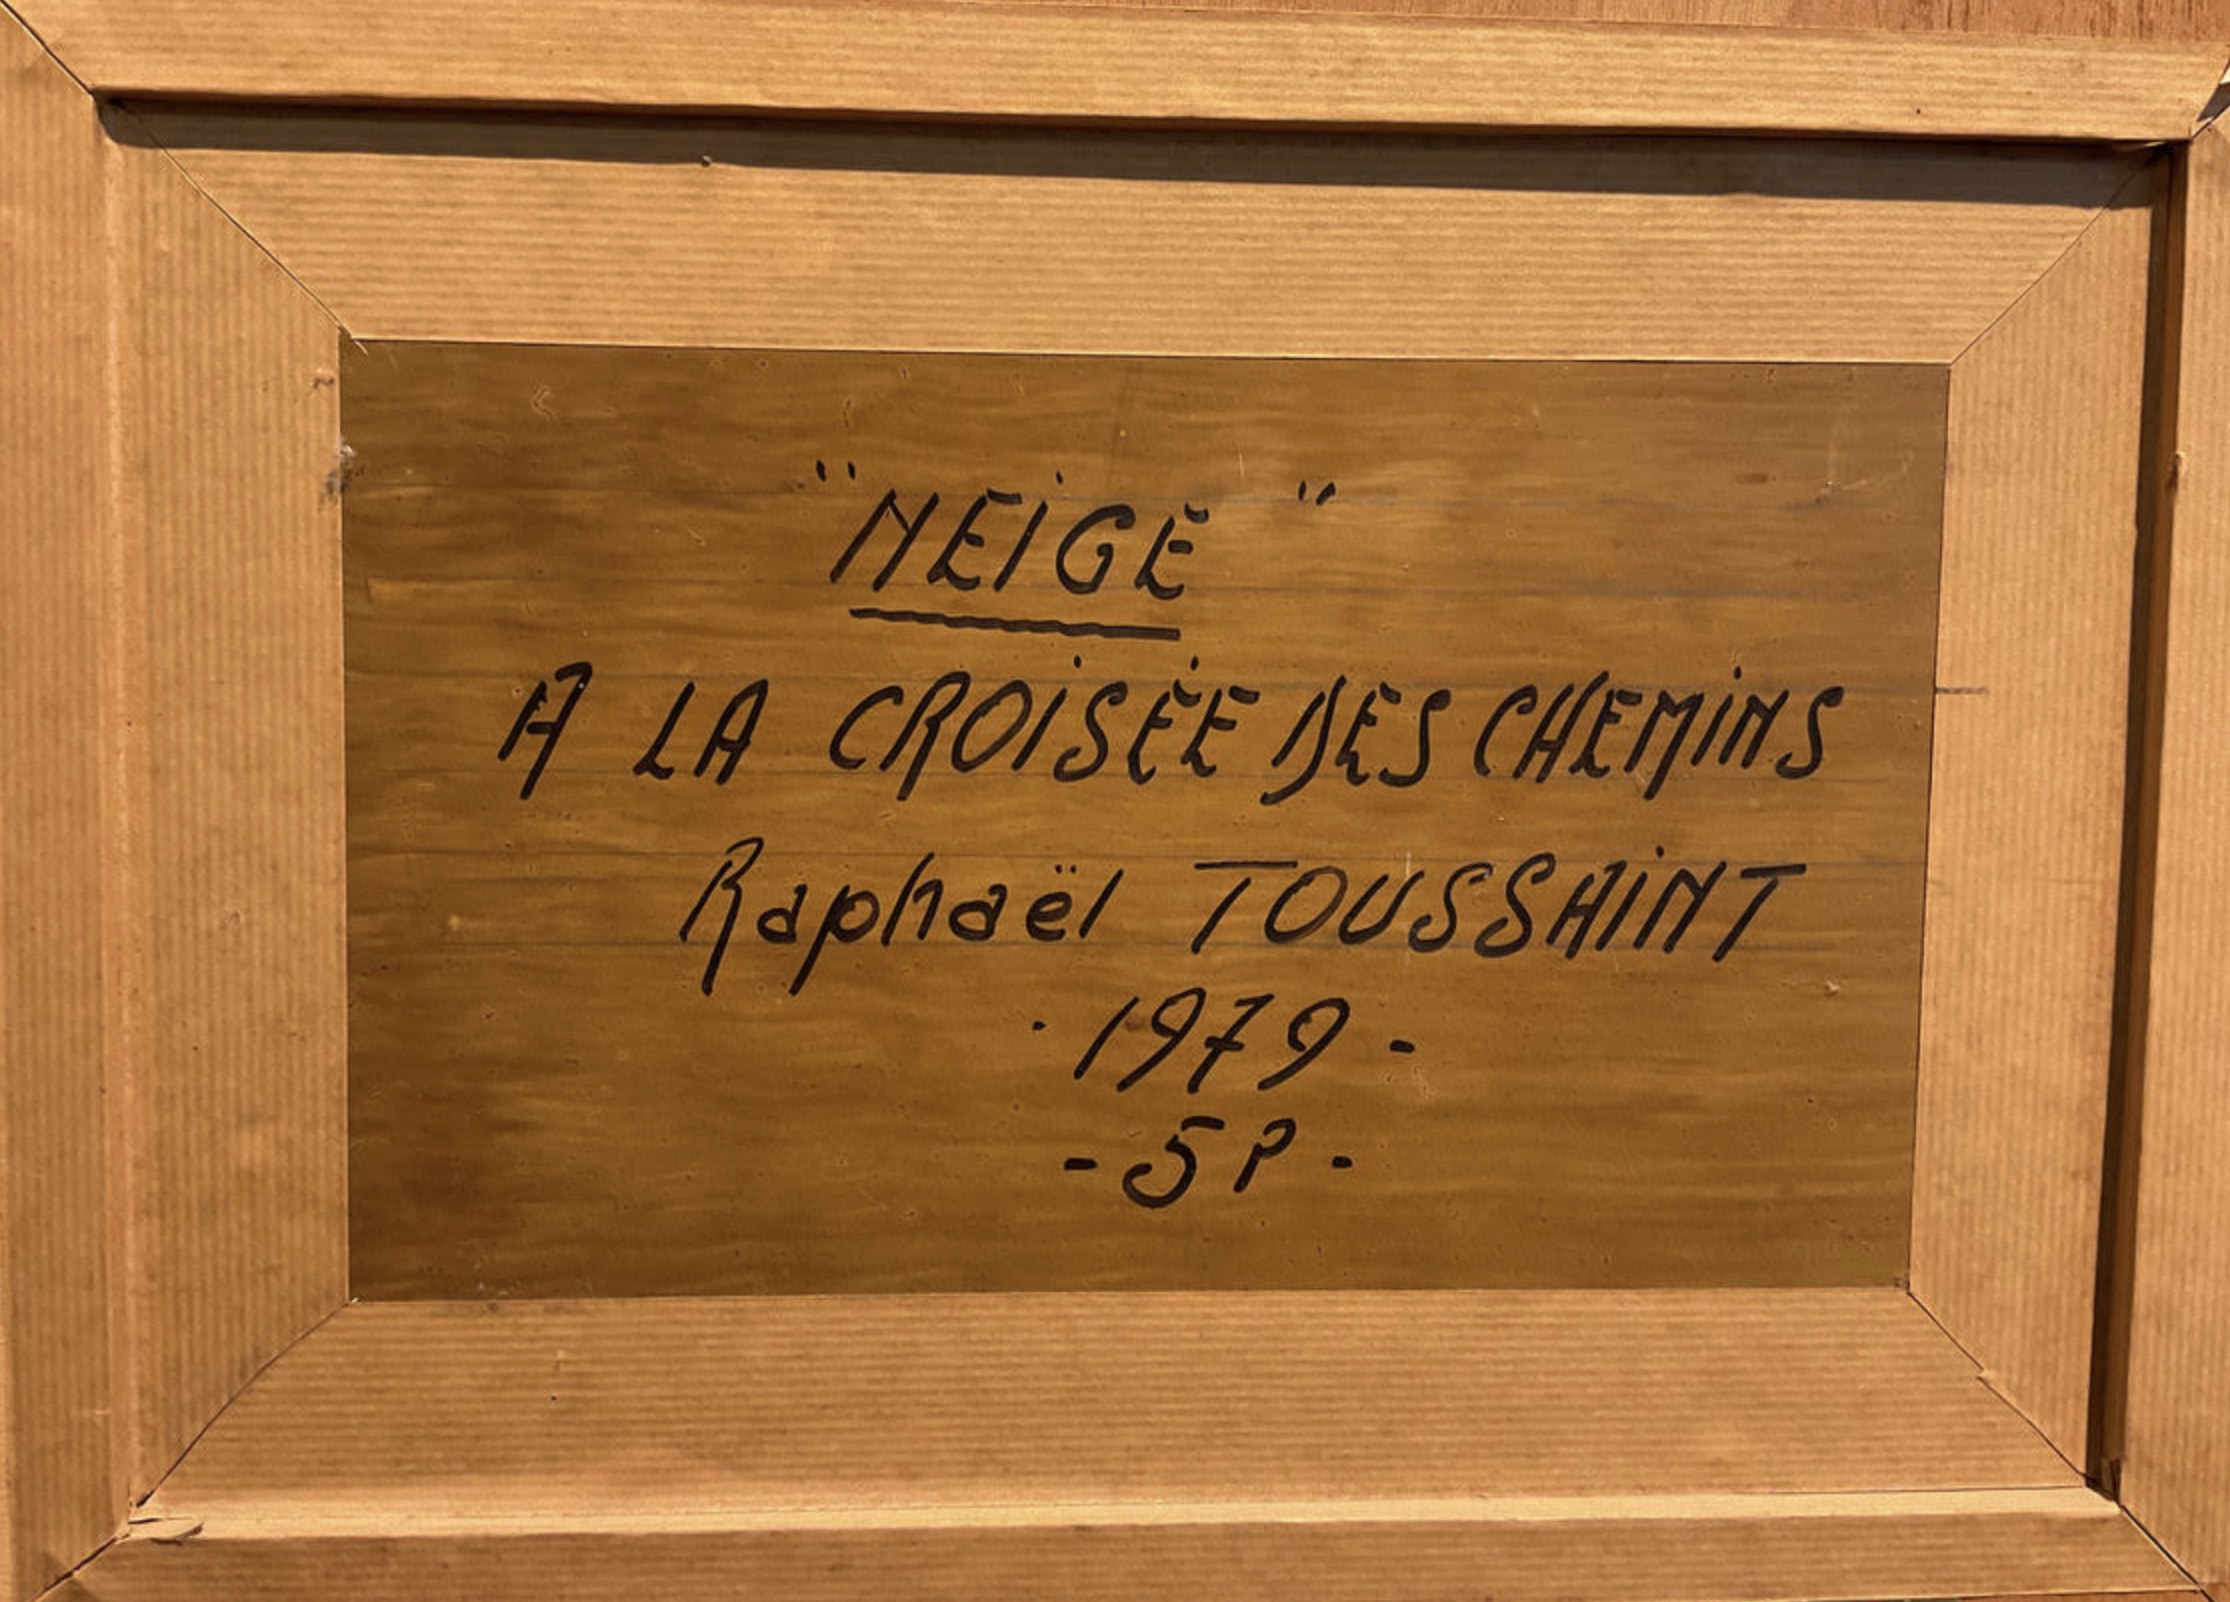 "NEIGE"
A LA CROISÉE DES CHEMINS
Raphaël TOUSSAINT
- 1979 -
- 5P -